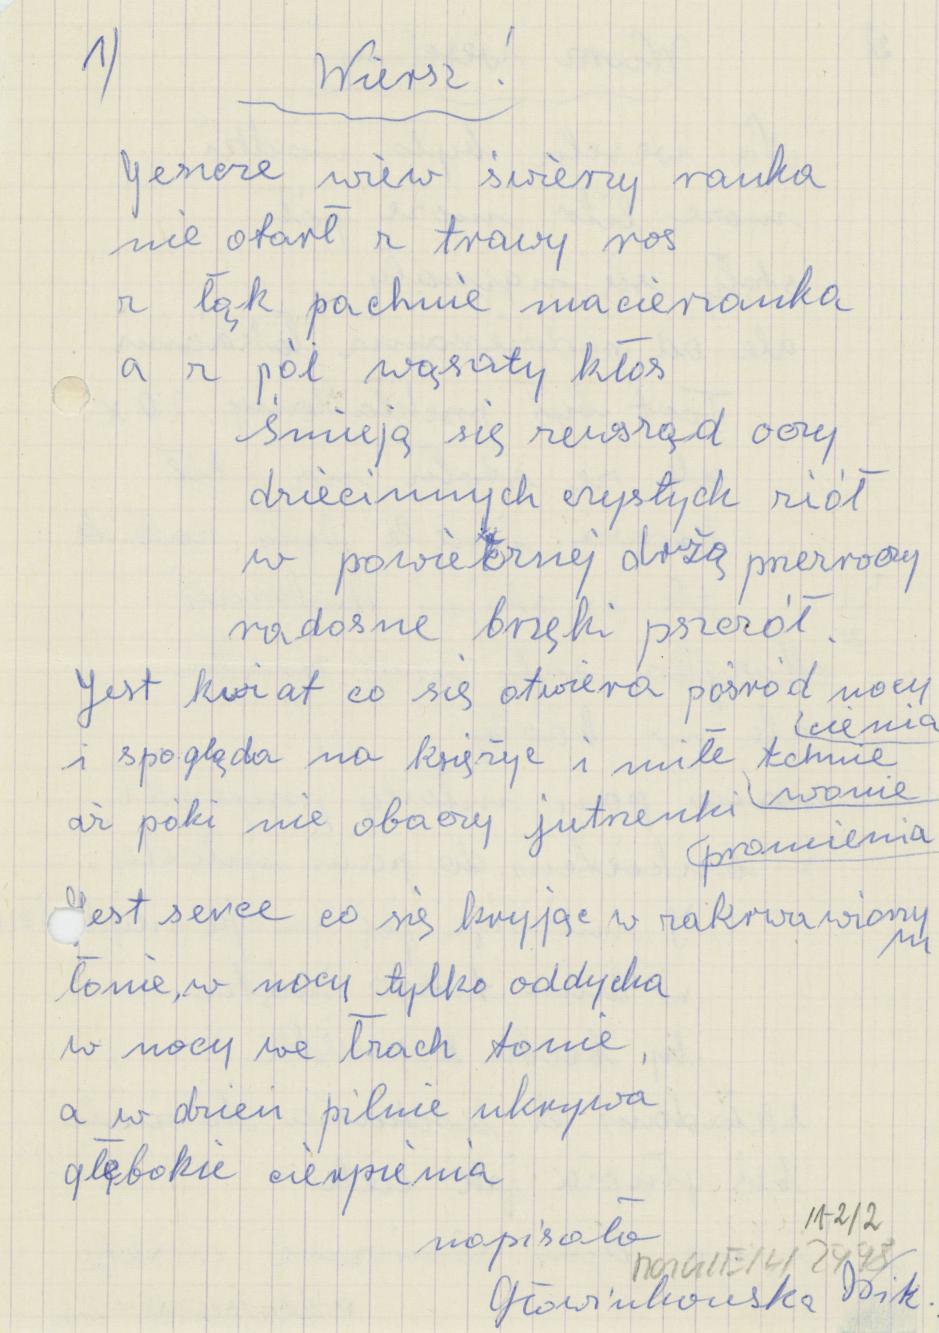 1)
Wiersz!
Jeszcze wiew świerzy ranka
nie otarł z trawy ros
z łąk pachnie macierzanka
a z pól wąsaty kłos
śmieją się zewsząd oczy
dziecinnych czystych ziół
w powietrznej drżą przezroczy
radosne brzęki pszczół.
Jest kwiat co się otwiera pośród nocy
cienia
i spogląda na księżyc i miłe tchnie
wonie
aż póki nie obaczy jutrzenki
promienia
Jest serce co się kryjąc w zakrwawiony
m
łonie, w nocy tylko oddycha
w nocy we łzach tonie,
a w dzień pilnie ukrywa
głębokie cierpienia
napisała
11-2/2
2498
Głowinkowska Wik.